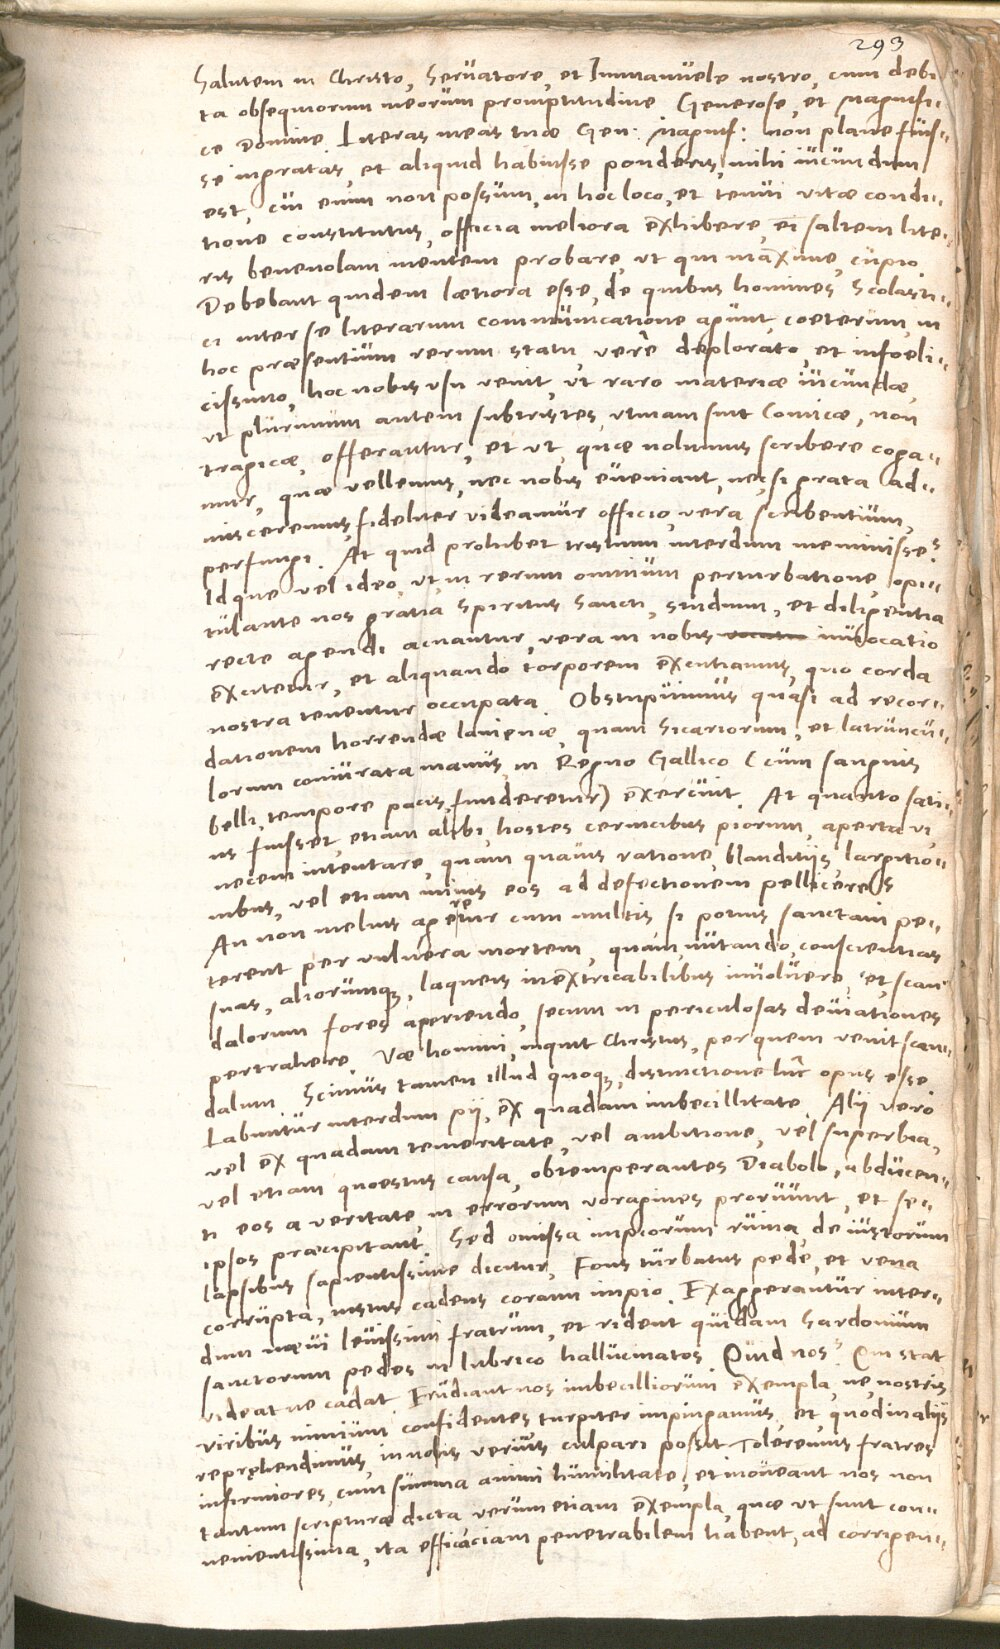 293
Salutem in Christo, Servatore, et Immanuele nostro, cum debi-
ta obsequiorum meorum promptitudine Generose, et Magnifi-
ce Domine. Literas meas tuae Gen: Magnif: non plane fuis-
se ingratas, et aliquid habuisse ponderis, mihi iucundum
est, cui enim non possum, in hoc loco, et tenui vitae condi-
tione constitutus, officia meliora exhibere, ei saltem lite-
ris benevolam mentem probare, ut qui maxime, cupio
Debebant quidem laetiora esse, de quibus homines Scolasti-
ci inter se literarum communicatione agunt, coeterum, in
hoc praesentium rerum statu, vere deplorato, et infoeli-
cissimo, hoc nobis usu venit, ut raro materiae iucundae,
ut plurimum autem subtristes, utinam sint Comicae, non
tragicae, offerantur, et ut, quae nolumus scribere coga-
mur, quae vellemus, nec nobis eveniant, nec si grata ad-
misceremus, fideliter videamur officio, vera scribentium,
perfungi. At quid prohibet tristium interdum meminisse?
Idque vel ideo, ut in rerum omnium perturbatione, opi-
tulante nos gratia Spiritus Sancti, studium, et diligentia
recte agendi acuantur, vera in nobis invocatio
excitetur, et aliquando torporem excutiamus, quo corda
nostra tenentur occupata. Obstupuimus quasi ad recor-
dationem horrendae lanienae, quam Sicariorum, et latruncu-
lorum coniurata manus, in Regno Gallico (cum sanguis
belli, tempore pacis, funderetur) exercuit. At quanto sati-
us fuisset, etiam alibi, hostes cervicibus piorum, aperta vi,
necem intentare, quam quavis ratione, blanditiis, largitio-
nibus, vel etiam minis eos ad defectionem pellicere?
An non melius ageretur cum multis si potius sanctam pe-
terent per vulnera mortem, quam, nutando, conscientias
suas, aliorumq, laqueis inextricabilibus involvere, et, scan-
dalorum fores aperiendo, secum in periculosas deviationes
pertrahere. Vae homini, inquit Christus, per quem venit scan-
dalum. Scimus tamen illud quoq, distinctione hic opus esse.
Labuntur interdum pij, ex quadam imbecillitate. Alij vero
vel ex quadam temeritate, vel ambitione, vel superbia,
vel etiam quoestus causa, obtemperantes Diabolo, abducen-
ti eos a veritate, in errorum voragines proruunt, et se-
ipsos praecipitant. Sed omissa impiorum ruina, de iustorum
lapsibus sapientissime dicitur, Fons turbatus pede, et vena
corrupta, iustus cadens coram impio. Exaggerantur inter-
dum naevi levissimi fratrum, et rident quidam Sardonium
sanctorum pedes in lubrico hallucinatos. Quid nos? Qui stat
videat ne cadat. Erudiant nos imbecilliorum exempla, ne, nostris
viribus nimium confidentes, turpiter impingamus, et, quod in alijs
reprehendimus, in nobis verius culpari possit. Toleremus fratres
infirmiores, cum summa animi humilitate, et moveant nos non
tantum scripturae dicta, verum etiam exempla, quae ut sunt con-
venientissima, ita efficaciam penetrabilem habent, ad corrigen-